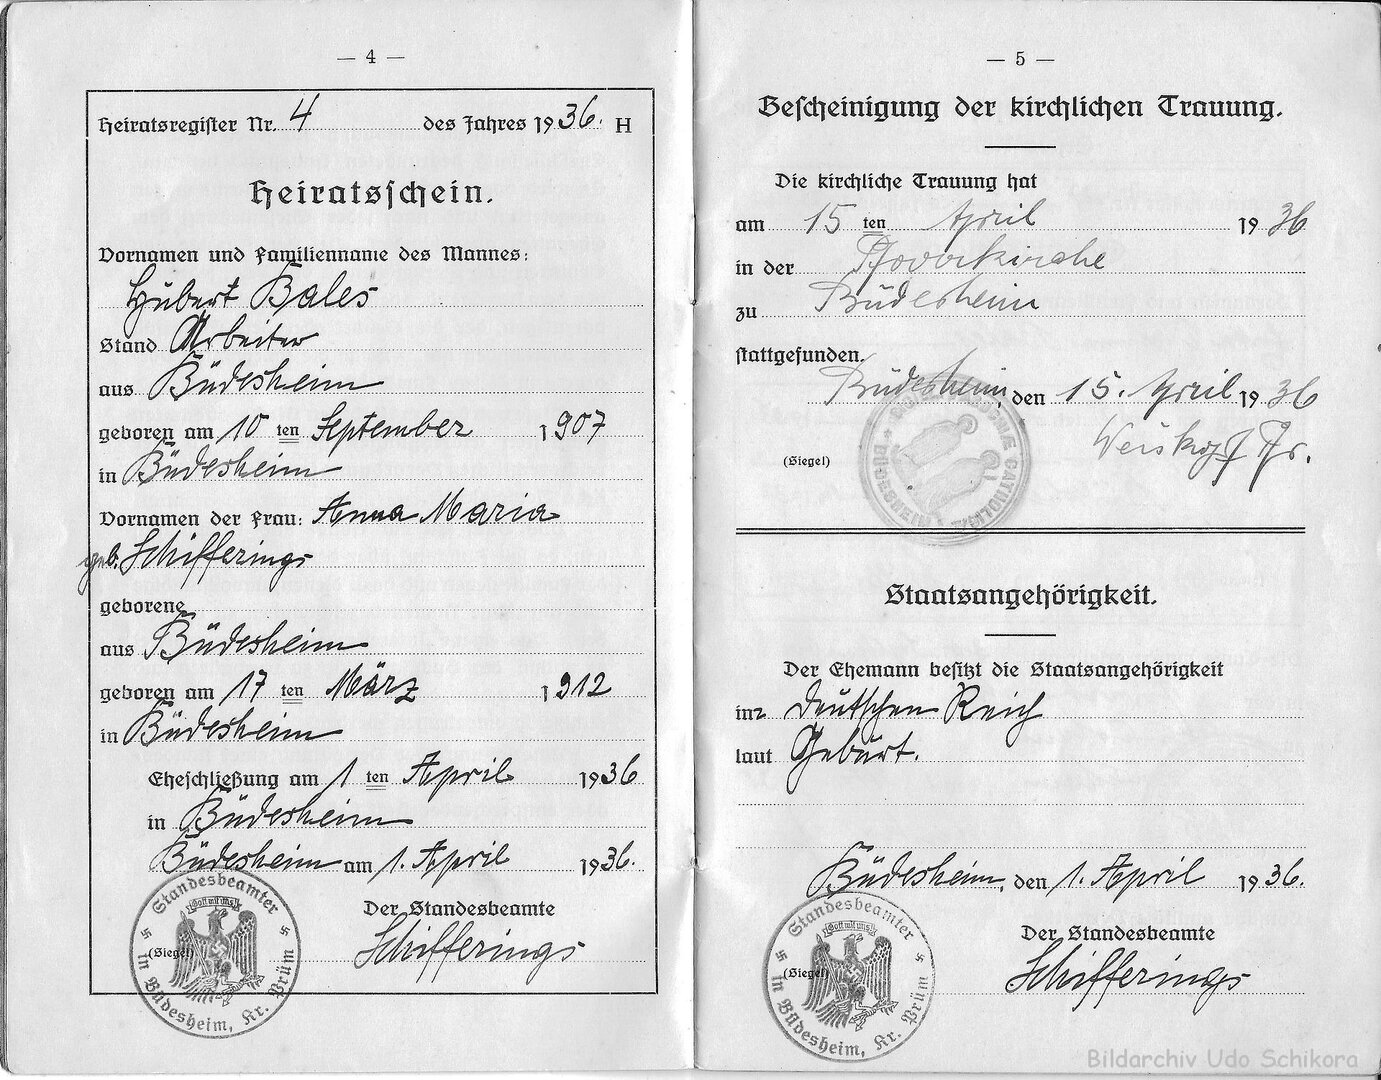 — 4 —
Heiratsregister Nr. 4 des Jahres 1936. H
Heiratsschein.
Vornamen und Familienname des Mannes:
Hubert Bales
Stand Arbeiter
aus Büdesheim
geboren am 10 ten September 1907
in Büdesheim
Vornamen der Frau: Anna Maria
geb. Schifferings
geborene
aus Büdesheim
geboren am 17 ten März 1912
in Büdesheim
Eheschließung am 1 ten April 1936
in Büdesheim
Büdesheim am 1. April 1936.
Der Standesbeamte
(Siegel) Schifferings
Standesbeamter
Gott mit uns
in Büdesheim, Kr. Prüm
— 5 —
Bescheinigung der kirchlichen Trauung.
Die kirchliche Trauung hat
am 15 ten April 1936
in der Pfarrkirche
zu Büdesheim
stattgefunden.
Büdesheim, den 15. April 1936
(Siegel) Weiskopf Pfr.
Staatsangehörigkeit.
Der Ehemann besitzt die Staatsangehörigkeit
im Deutschen Reich
laut Geburt.
Büdesheim, den 1. April 1936.
Der Standesbeamte
(Siegel) Schifferings
Standesbeamter
Gott mit uns
in Büdesheim, Kr. Prüm
Bildarchiv Udo Schikora